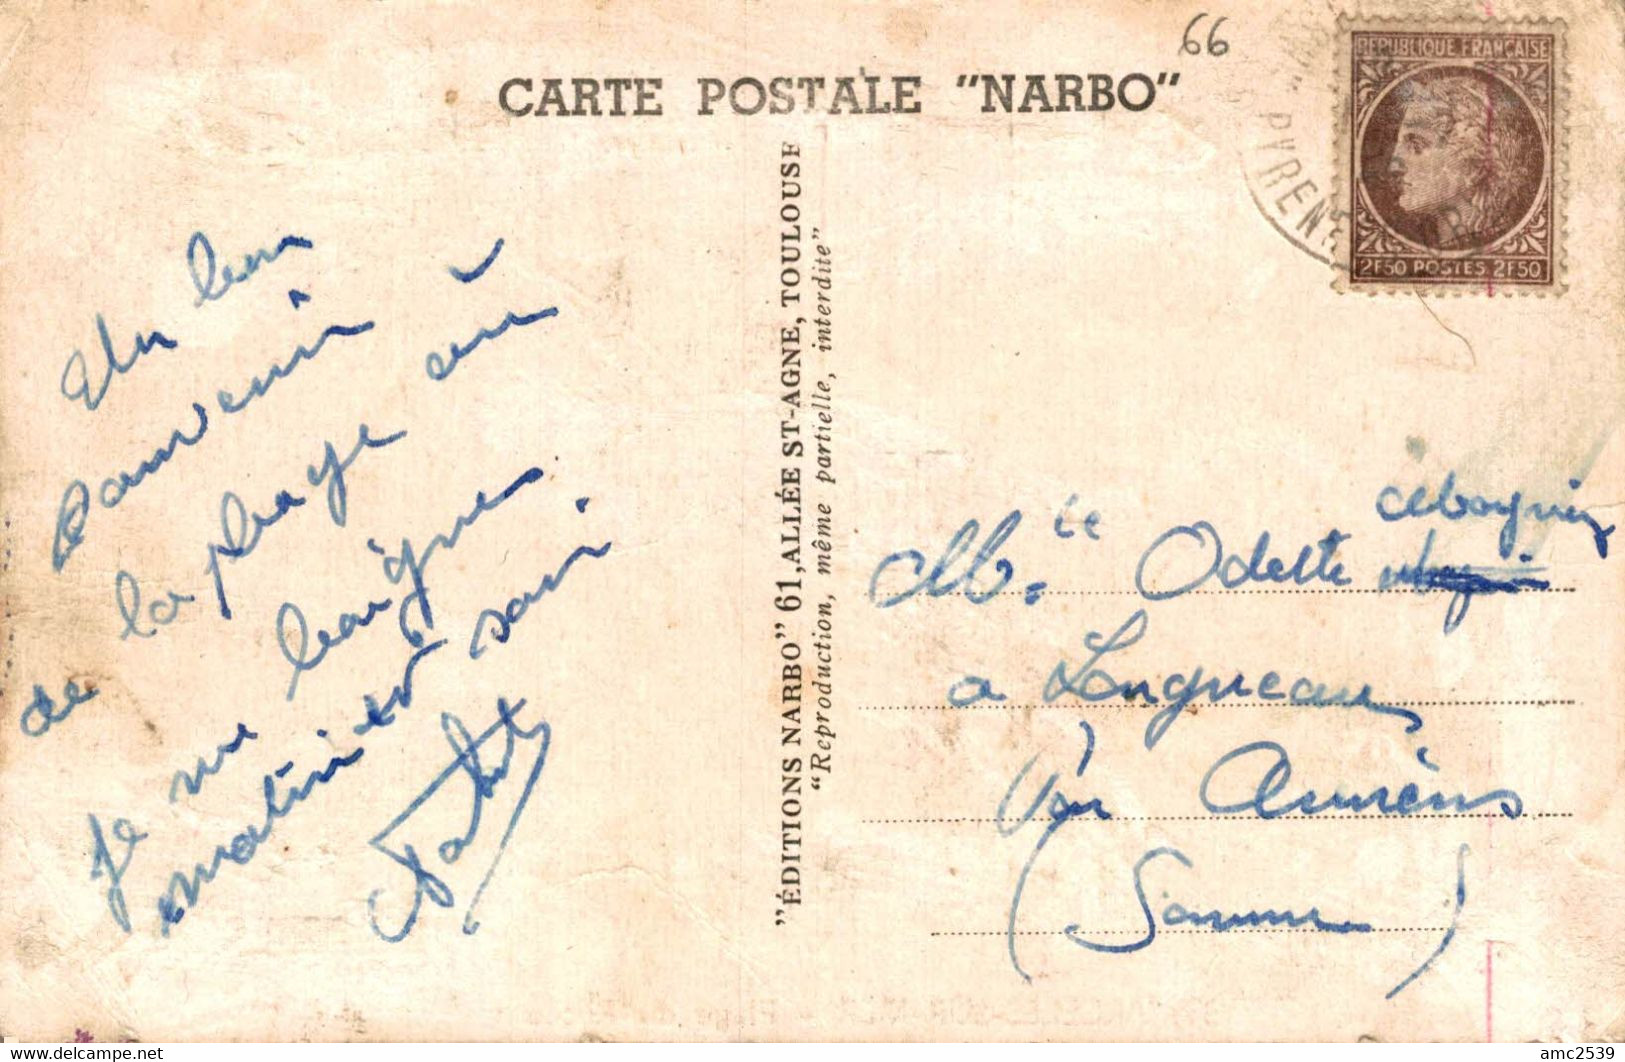 66
CARTE POSTALE "NARBO"
REPUBLIQUE FRANÇAISE
2F50 POSTES 2F50
PYRENE
Un bon
souvenir
de la plage où
je me baigne
matin et soir
"ÉDITIONS NARBO" 61, ALLÉE ST-AGNE, TOULOUSE
"Reproduction, même partielle, interdite"
Mlle Odette
a Longueau
Par Amiens
(Somme)
www.delcampe.net
amc2539